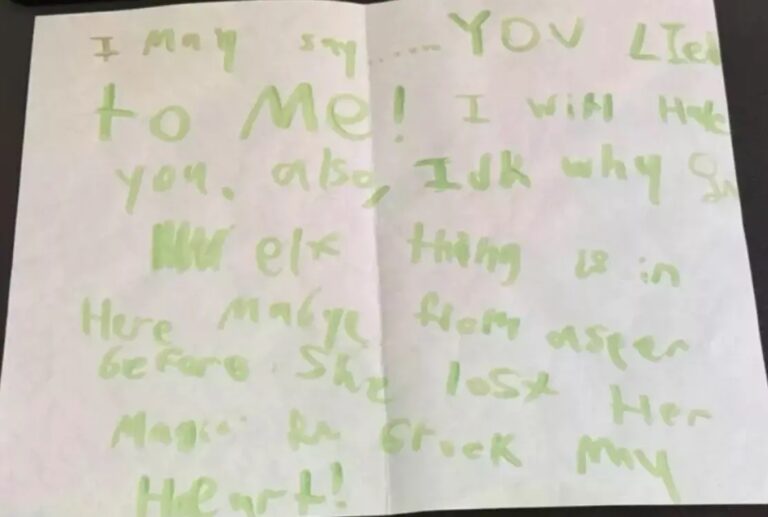 I May say..... YOU LIed
to Me! I will Hate
you. also, Idk why
elx thing is in
Here Mabye from asper
before She lost Her
Magic stuck My
Heart!